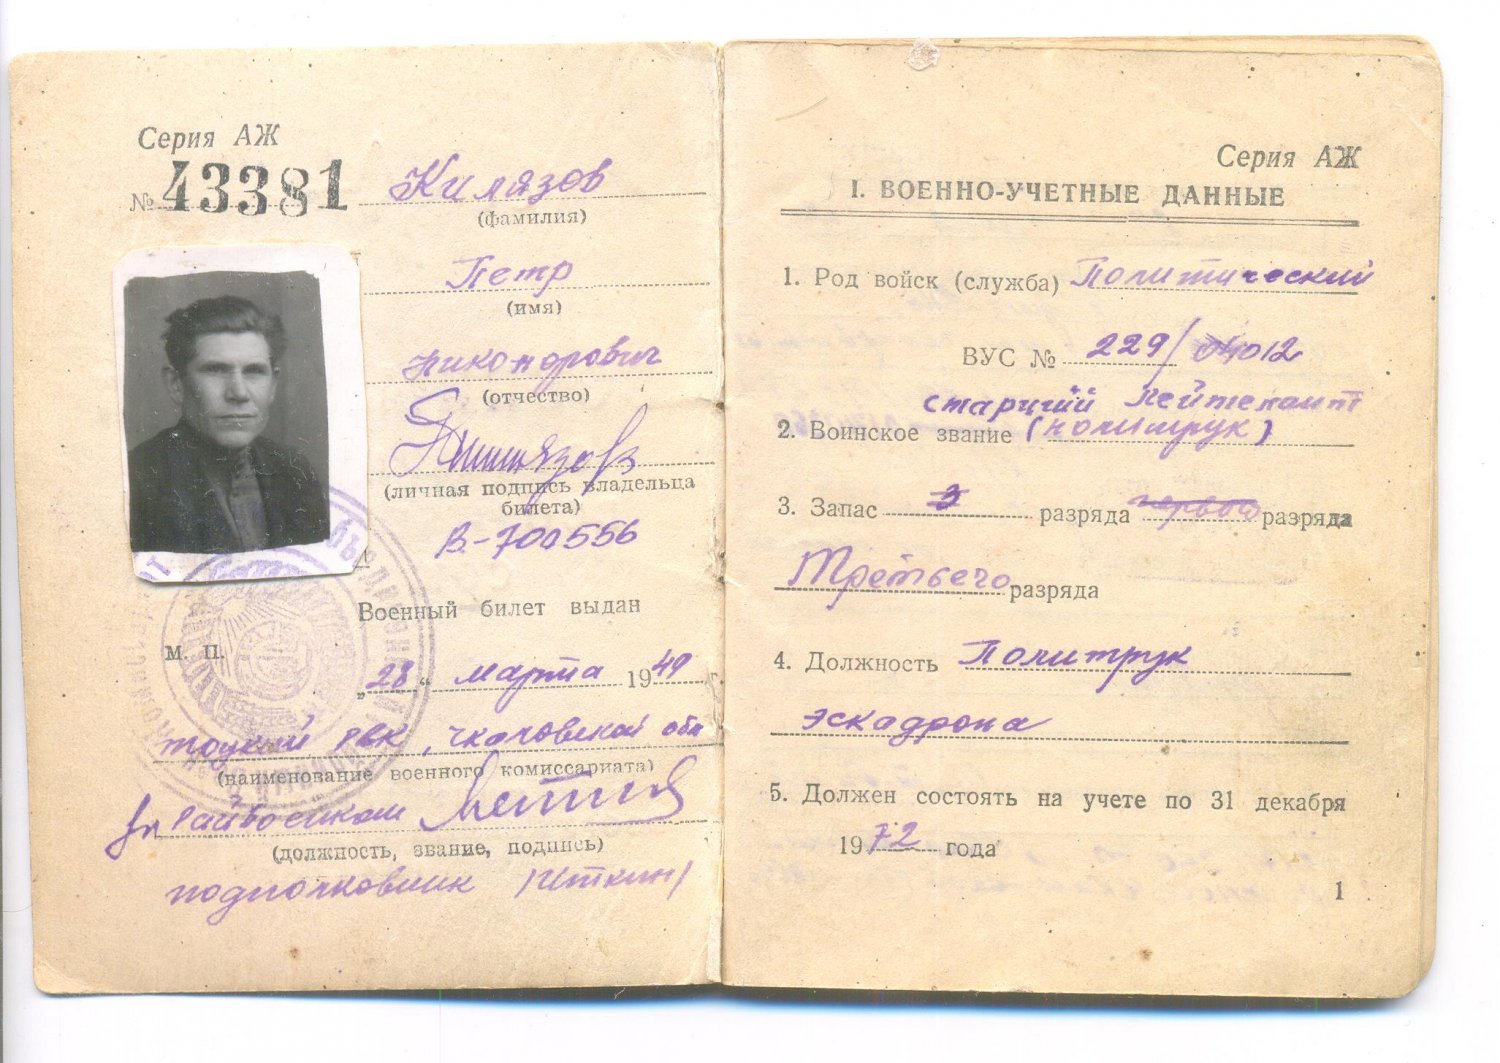 Серия АЖ
№ 43381
Килязов
(фамилия)
Петр
(имя)
Никондрович
(отчество)
(личная подпись владельца
билета)
В-700556
Военный билет выдан
М. П.
„28“ марта 1949 г.
Тоцкий РВК, Чкаловской обл
(наименование военного комиссариата)
Райвоенком
(должность, звание, подпись)
подполковник
Серия АЖ
I. ВОЕННО-УЧЕТНЫЕ ДАННЫЕ
1. Род войск (служба) Политический
ВУС № 229/ 012
старший лейтенант
2. Воинское звание (политрук)
3. Запас 3 разряда первого разряда
Третьего разряда
4. Должность Политрук
эскадрона
5. Должен состоять на учете по 31 декабря
1972 года
1